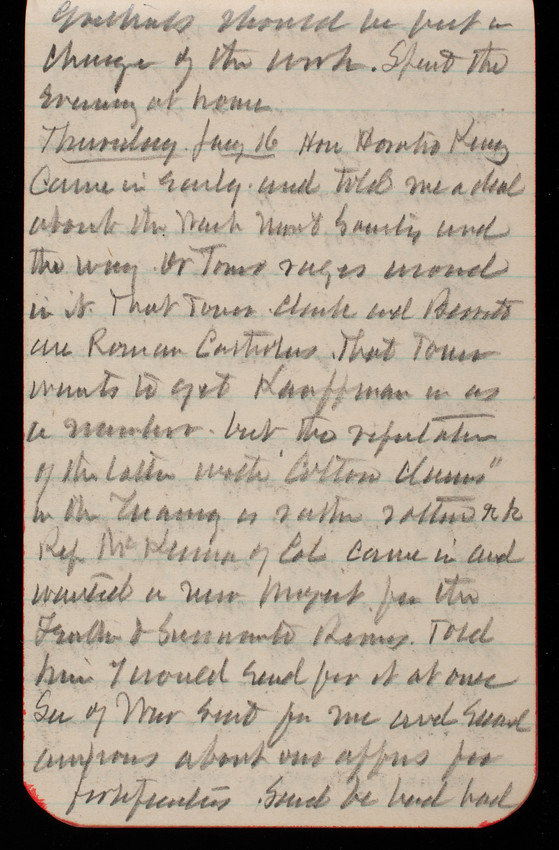 should be put in
charge of the work. Spent the
evening at home
Thursday. Jany 16 Hon Horatio King
Came in early and told me a deal
about the Wash Mont Society and
the way Dr Toner ruges around
in it. That Toner. Clark and
are Roman Catholics. That Toner
wants to get Kauffman in as
a member. but the reputation
of the latter with "Cotton Claims"
in the Treasury is rather rotten &c
Rep McKenna of Cal came in and
wanted a new project for the
Feather & Sacramento Rivers. Told
him I would send for it at once
Sec of War sent for me and seemed
anxious about our approps for
fortifications. Said he had had